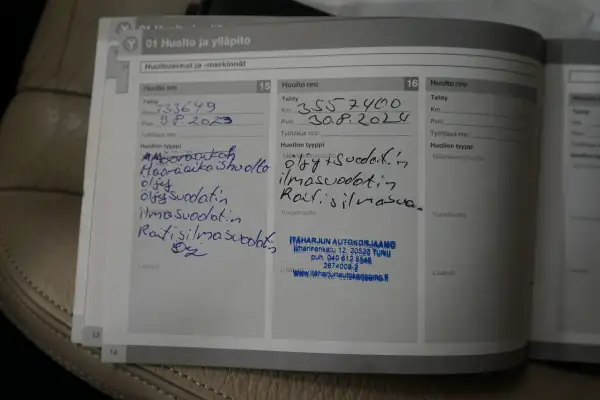 01 Huolto ja ylläpito
Huoltoleimat ja -merkinnät
Huolto nro 15
Tehty
Km 333649
Pvm 9.8.2023
Työtilaus nro
Huollon tyyppi
Määräaikaishuolto
öljy
öljysuodatin
ilmasuodatin
Raitisilmasuodatin
Lisätyö
Huolto nro 16
Tehty
Km 3557400
Pvm 30.8.2024
Työtilaus nro
Huollon tyyppi
öljysuodatin
ilmasuodatin
Raitisilmasuo.
Vuosihuolto
ITÄHARJUN AUTOKORJAAMO
20520 TURKU
puh. 040 612 5946
2674008-2
www.itaharjunautokorjaamo.fi
Huolto nro
Tehty
Km
Pvm
Työtilaus nro
Huollon tyyppi
Määräaikaishuolto
Vuosihuolto
Lisätyö